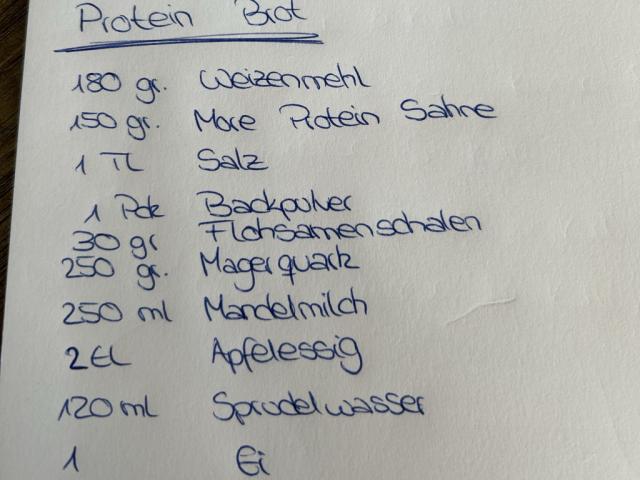 Protein Brot
180 gr. Weizenmehl
150 gr. More Protein Sahne
1 TL Salz
1 Pck Backpulver
30 gr Flohsamenschalen
250 gr. Magerquark
250 ml Mandelmilch
2 EL Apfelessig
120 ml Sprudelwasser
1 Ei